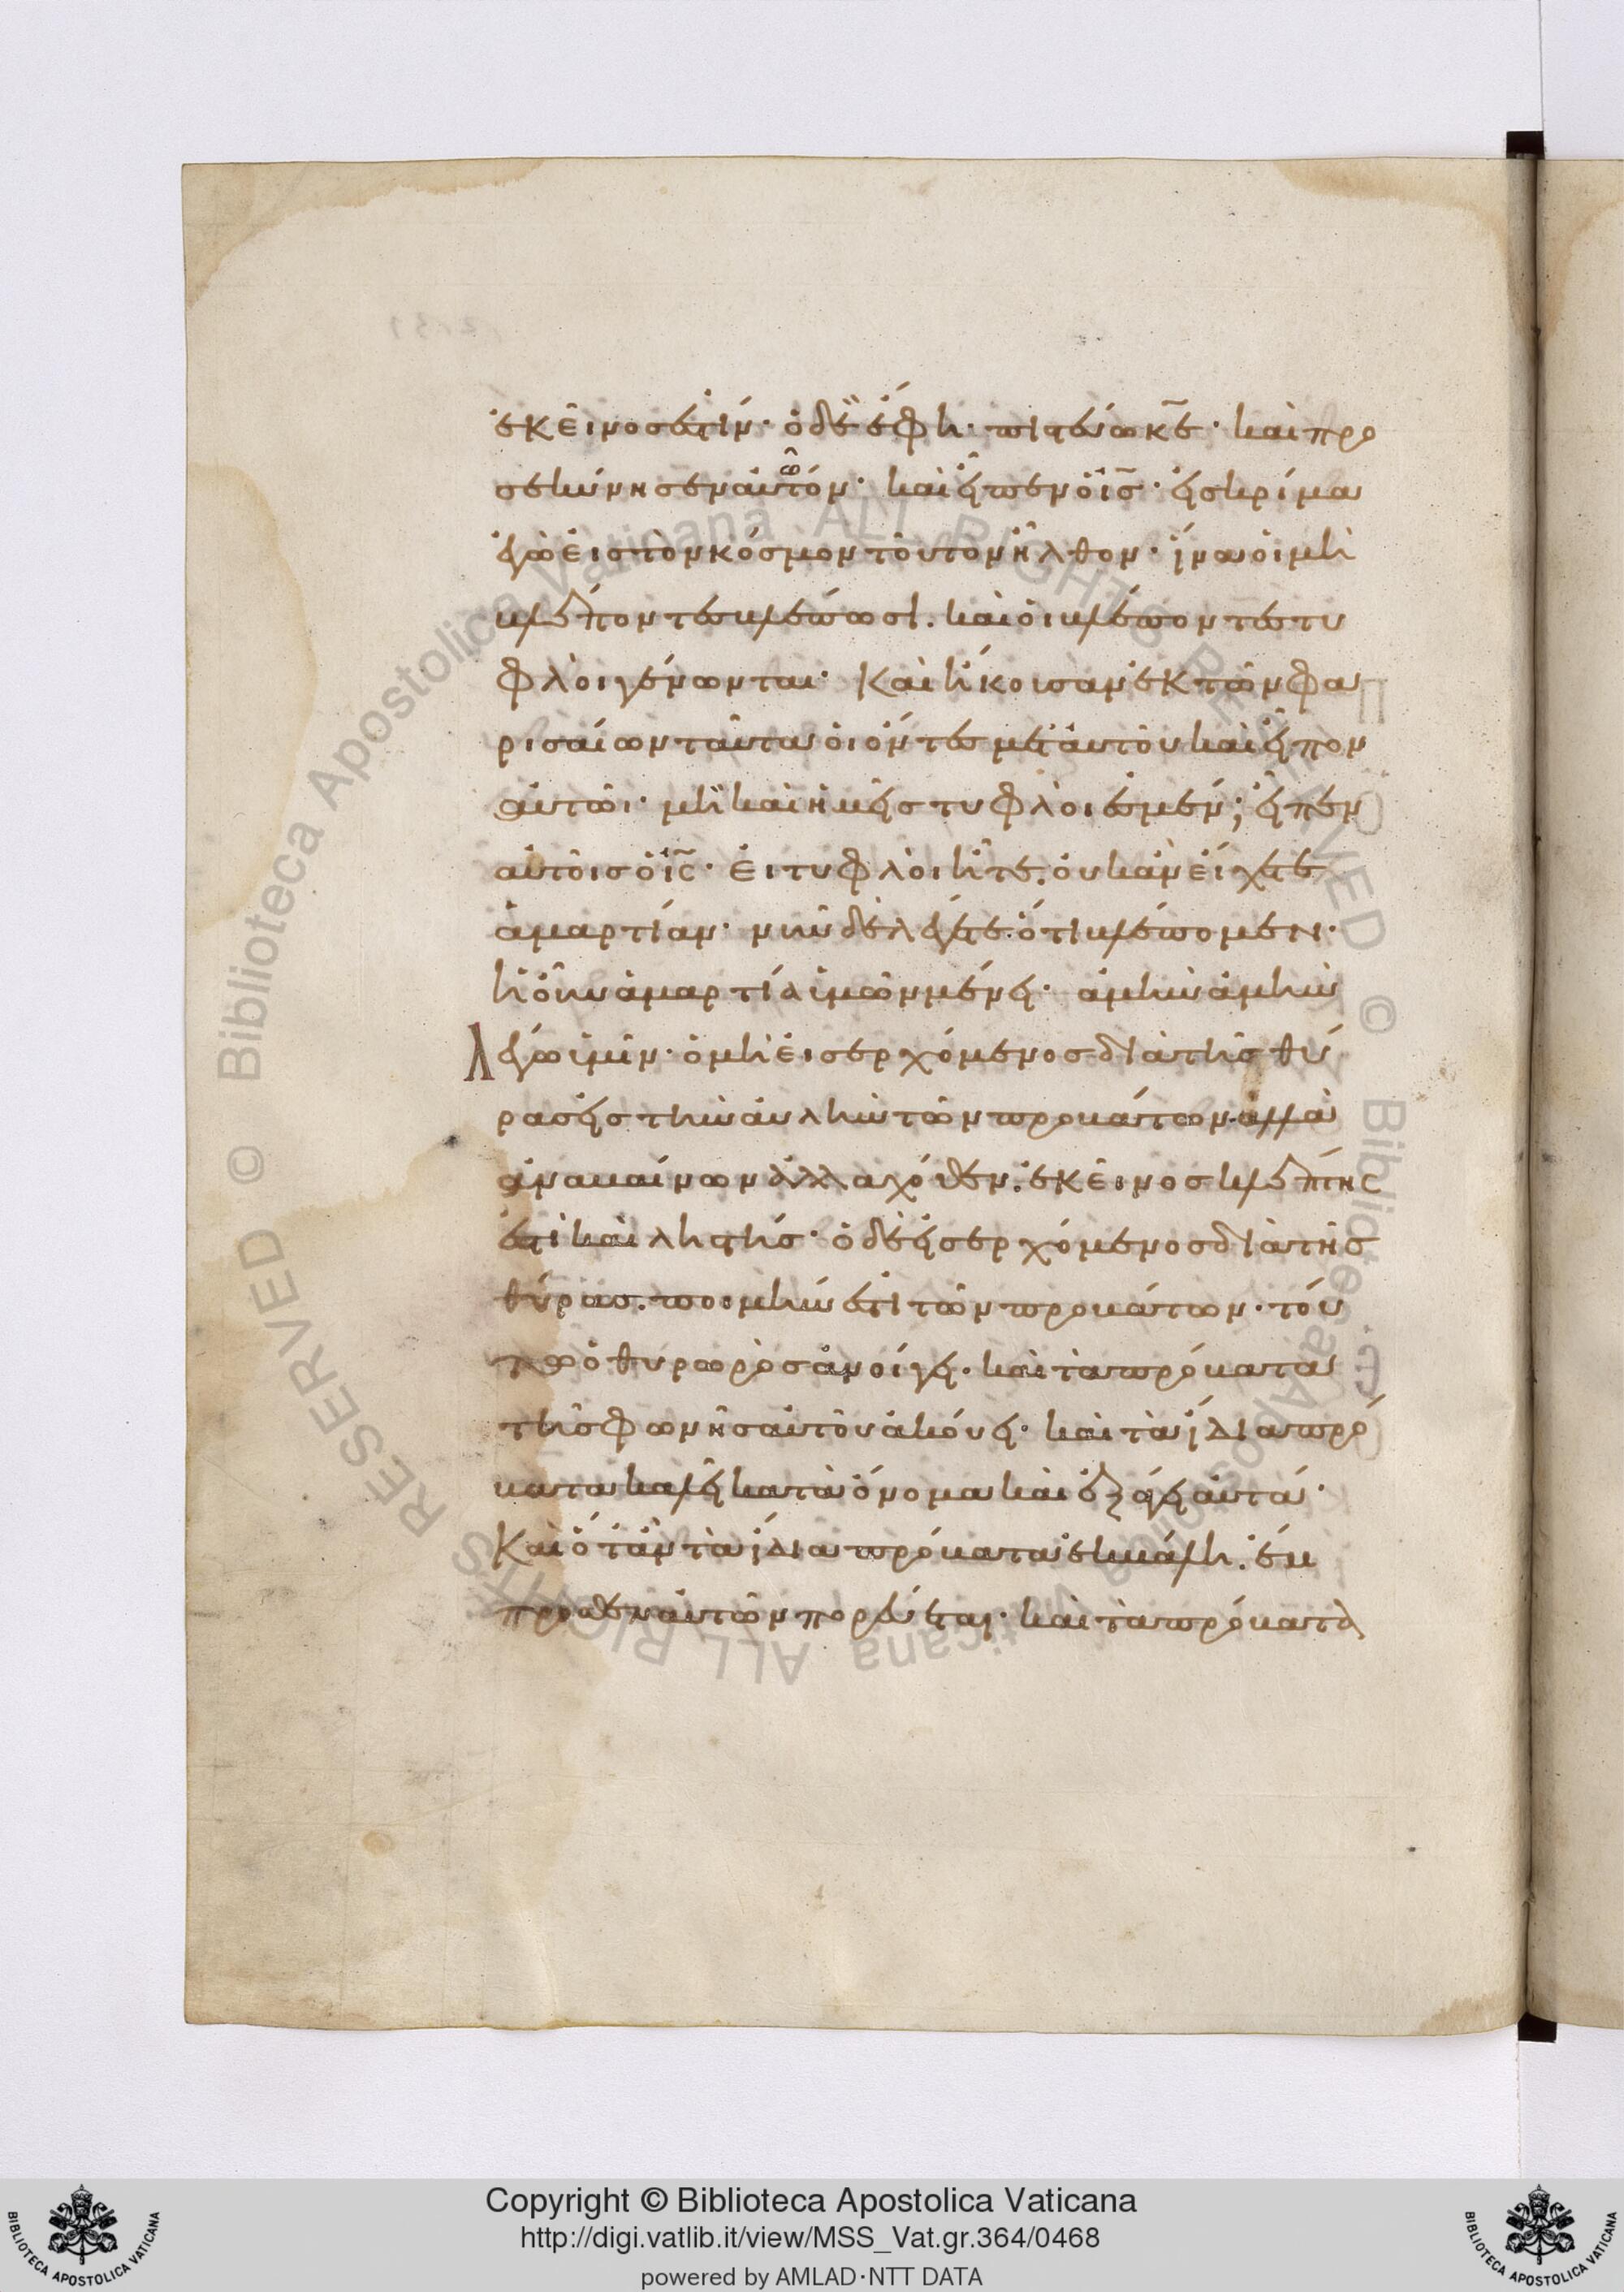 ἐκεῖνος ἐστίν· ὁ δὲ ἔφη· πιστεύω κ̅ε̅· καὶ προ
σεκύνησεν αὐτῶ· καὶ εἶπεν ὁ ι̅ς̅· εἰς κρίμα
ἐγὼ εἰς τὸν κόσμον τοῦτον ἦλθον· ἵνα οἱ μὴ
βλέποντες βλέπωσι. καὶ οἱ βλέποντες τυ
φλοὶ γένωνται· Καὶ ἤκουσαν ἐκ τῶν φα
ρισαίων ταῦτα οἱ ὄντες μετ' αὐτοῦ καὶ εἶπον
αὐτῶι· μὴ καὶ ἡμεῖς τυφλοὶ ἐσμέν; εἶπεν
αὐτοῖς ὁ ι̅ς̅· εἰ τυφλοὶ ἦτε. οὐκ ἂν εἴχετε
ἁμαρτίαν· νῦν δὲ λέγετε. ὅτι βλέπομεν·
ἡ οὖν ἁμαρτία ὑμῶν μένει· ἀμὴν ἀμὴν
λέγω ὑμῖν· ὁ μὴ εἰσερχόμενος διὰ τῆς θύ
ρας εἰς τὴν αὐλὴν τῶν προβάτων. ἀλλὰ
ἀναβαίνων ἀλλαχόθεν. ἐκεῖνος κλέπτης
ἐστὶ καὶ ληστής· ὁ δὲ εἰσερχόμενος διὰ τῆς
θύρας. ποιμήν ἐστι τῶν προβάτων· τού
τω ὁ θυρωρὸς ἀνοίγει. καὶ τὰ πρόβατα
τῆς φωνῆς αὐτοῦ ἀκούει· καὶ τὰ ἴδια πρό
βατα καλεῖ κατὰ ὄνομα καὶ ἐξάγει αὐτά·
Καὶ ὅταν τὰ ἴδια πρόβατα ἐκβάλη. ἔμ
προσθεν αὐτῶν πορεύεται· καὶ τὰ πρόβατα
Copyright © Biblioteca Apostolica Vaticana
http://digi.vatlib.it/view/MSS_Vat.gr.364/0468
powered by AMLAD·NTT DATA
BIBLIOTECA APOSTOLICA VATICANA
BIBLIOTECA APOSTOLICA VATICANA
© Biblioteca Apostolica Vaticana ALL RIGHTS RESERVED © Biblioteca Apostolica Vaticana ALL RIGHTS RESERVED